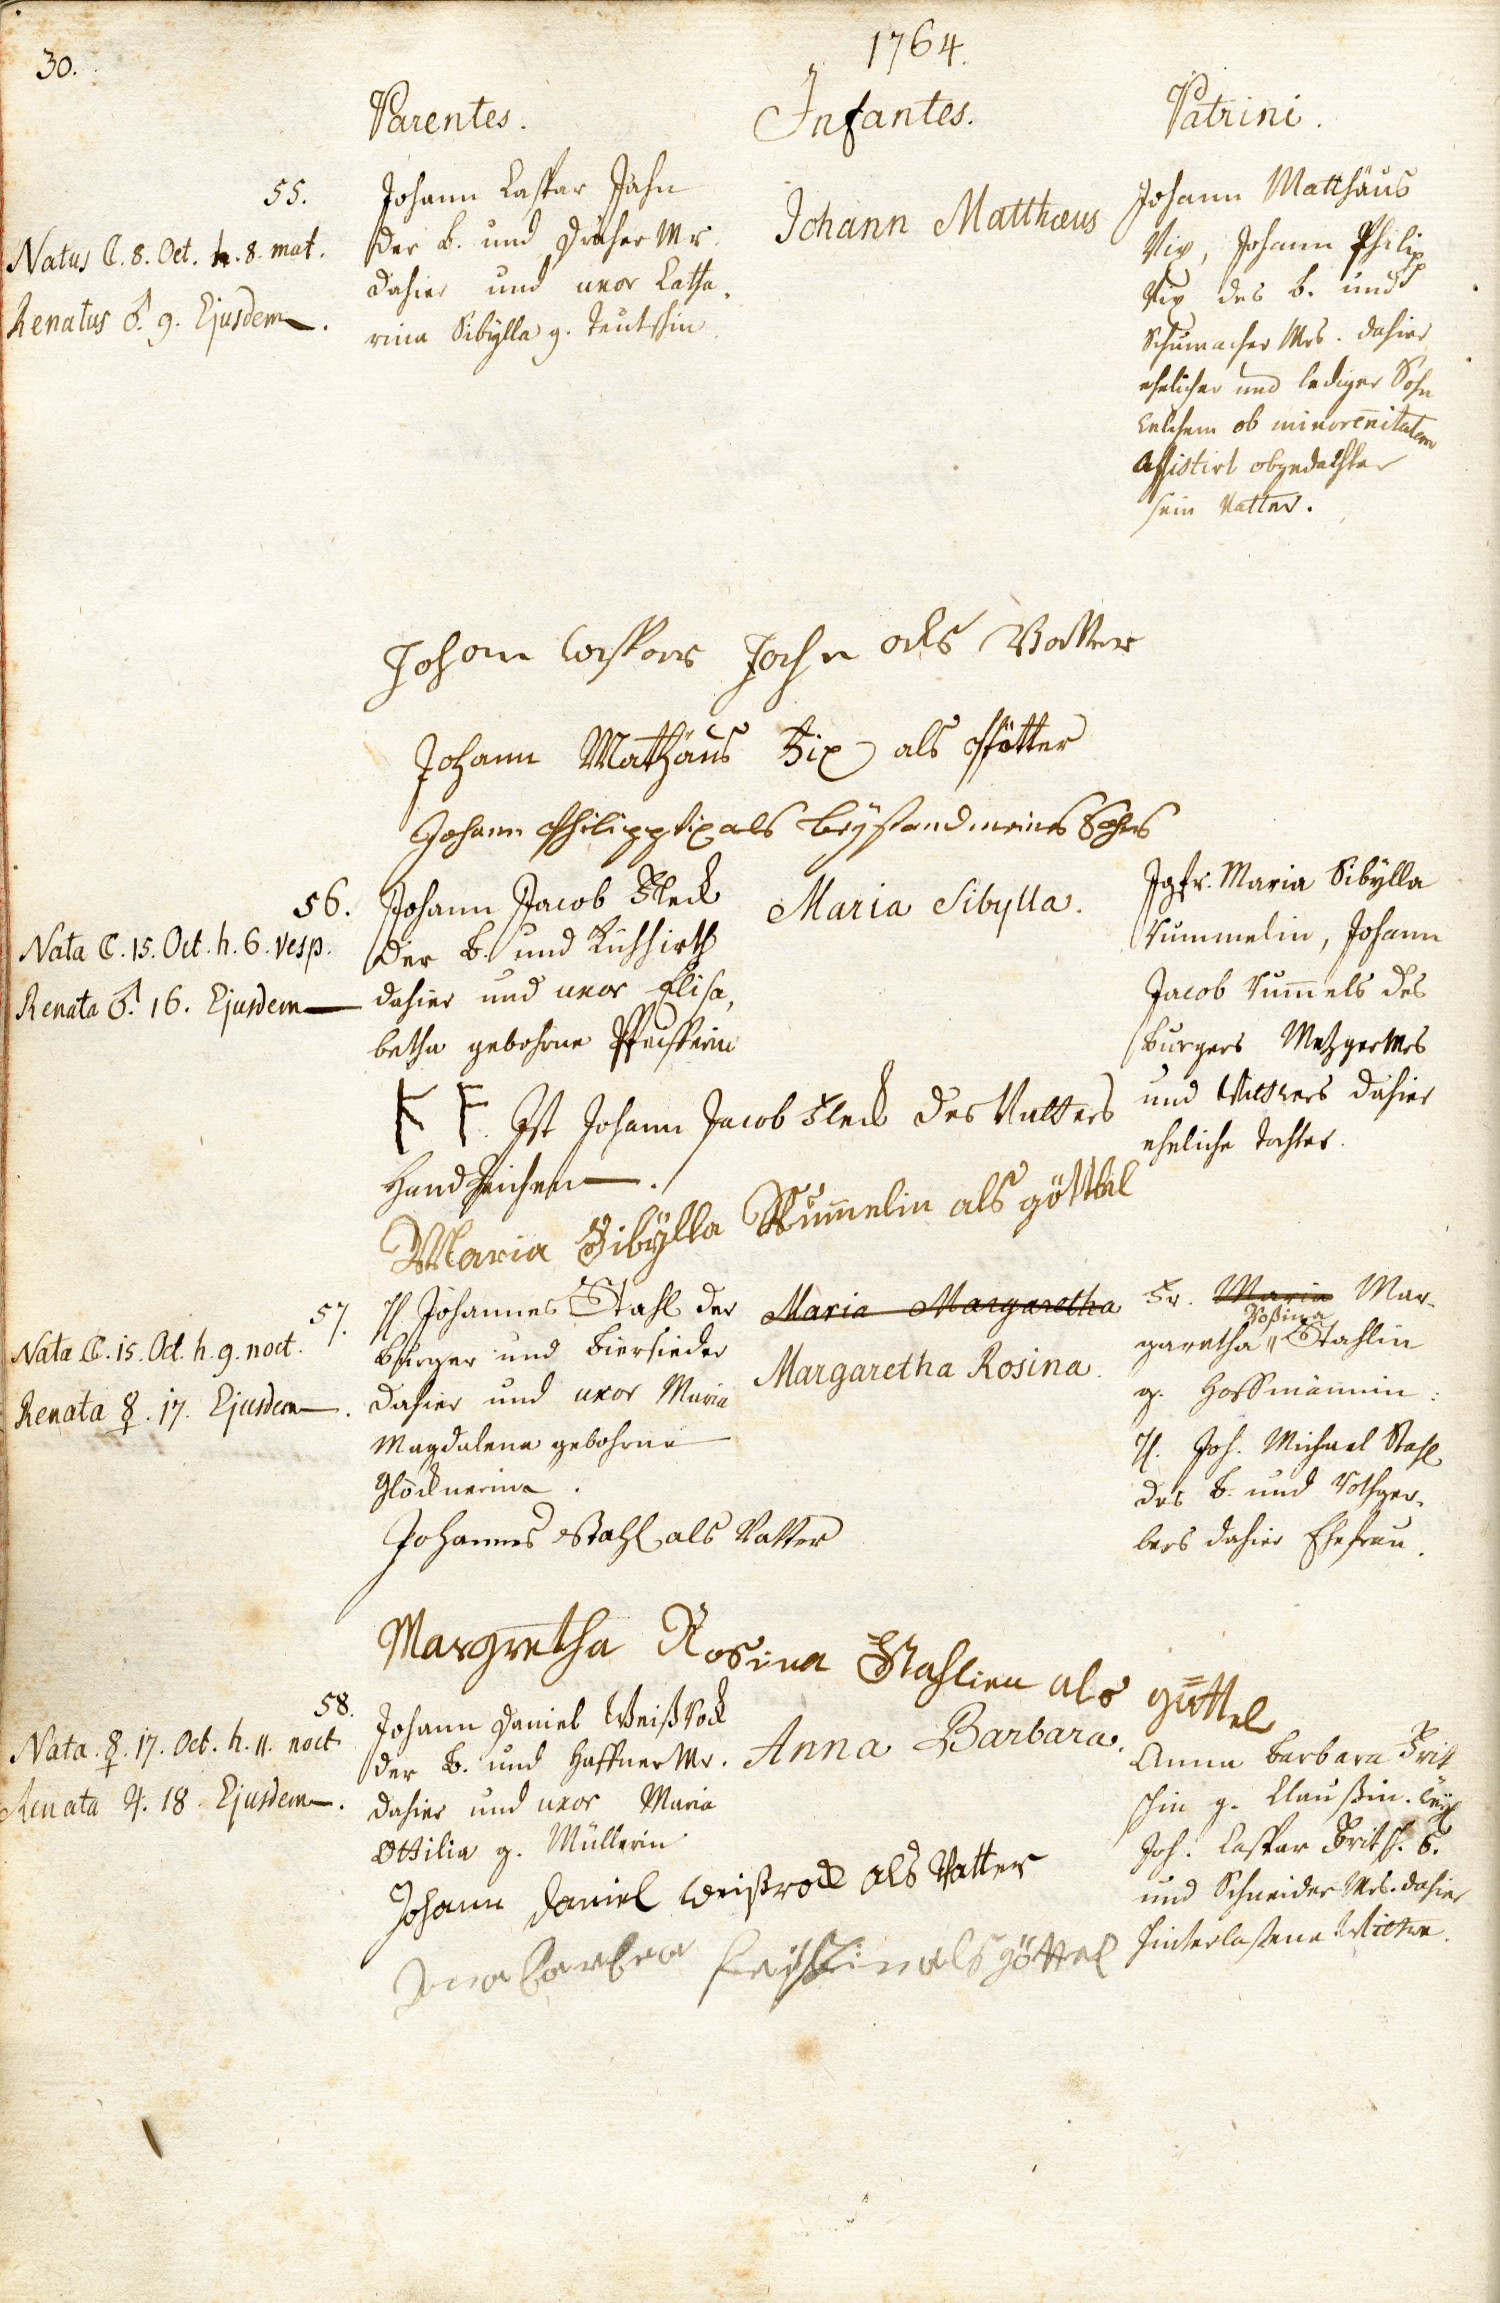 30.
1764.
Parentes.
Infantes.
Patrini.
55.
Natus ☾. 8. Oct. h. 8. mat.
Renatus ♂. 9. Ejusdem.
Johann Caspar Jahn
der b. und Dreher Mr.
dahier und uxor Catha-
rina Sibylla g. Teutschin
Johann Matthæus
Johann Matthäus
Vix, Johann Philip
Vix des b. und
Schumacher Mrs. dahier
ehelicher und lediger Sohn
welchem ob minorennitatem
assistirt obgedachter
sein Vatter.
Johan Casspar Jahn als Vatter
Johann Mathäus Fix als Pfötter
Johann Philipp Fix als beystand meines Sohns
56.
Nata ☾. 15. Oct. h. 6. vesp.
Renata ♂. 16. Ejusdem
Johann Jacob Fleck
der b. und Kuhhirth
dahier und uxor Elisa-
betha gebohrne
Maria Sibylla.
Jgfr. Maria Sibylla
Rummelin, Johann
Jacob Rum̄els des
burgers Metzger Mrs
und Wittwers dahier
eheliche Tochter.
F F. Ist Johann Jacob Fleck des Vatters
Handzeichen.
Maria Sibÿlla Rum̄elin als göttel
57.
Nata ☾. 15. Oct. h. 9. noct.
Renata ☿. 17. Ejusdem.
H. Johannes Stahl der
burger und Biersieder
dahier und uxor Maria
Magdalena gebohrne
Glöcknerina.
Maria Margaretha
Margaretha Rosina.
Fr. Maria Mar-
Roßina
garetha " Stahlin
g. Hoffmännin:
H. Joh. Michael Stahl
des b. und Rothger-
bers dahier Ehefrau.
Johannes Stahl als Vatter
Margretha Rosina Stahlien als güttel
58.
Nata. ☿. 17. Oct. h. 11. noct
Renata ♃. 18. Ejusdem.
Johann Daniel Weißrock
der b. und Haffner Mr.
dahier und uxor Maria
Ottilia g. Müllerin
Anna Barbara.
Anna Barbara Frit
schin g. Claußin.
Joh. Caspar Fritsch. b.
und Schneider Mrs. dahier
hinterlaßene Wittwe.
Johann Daniel Weißrock als Vatter
als göttel